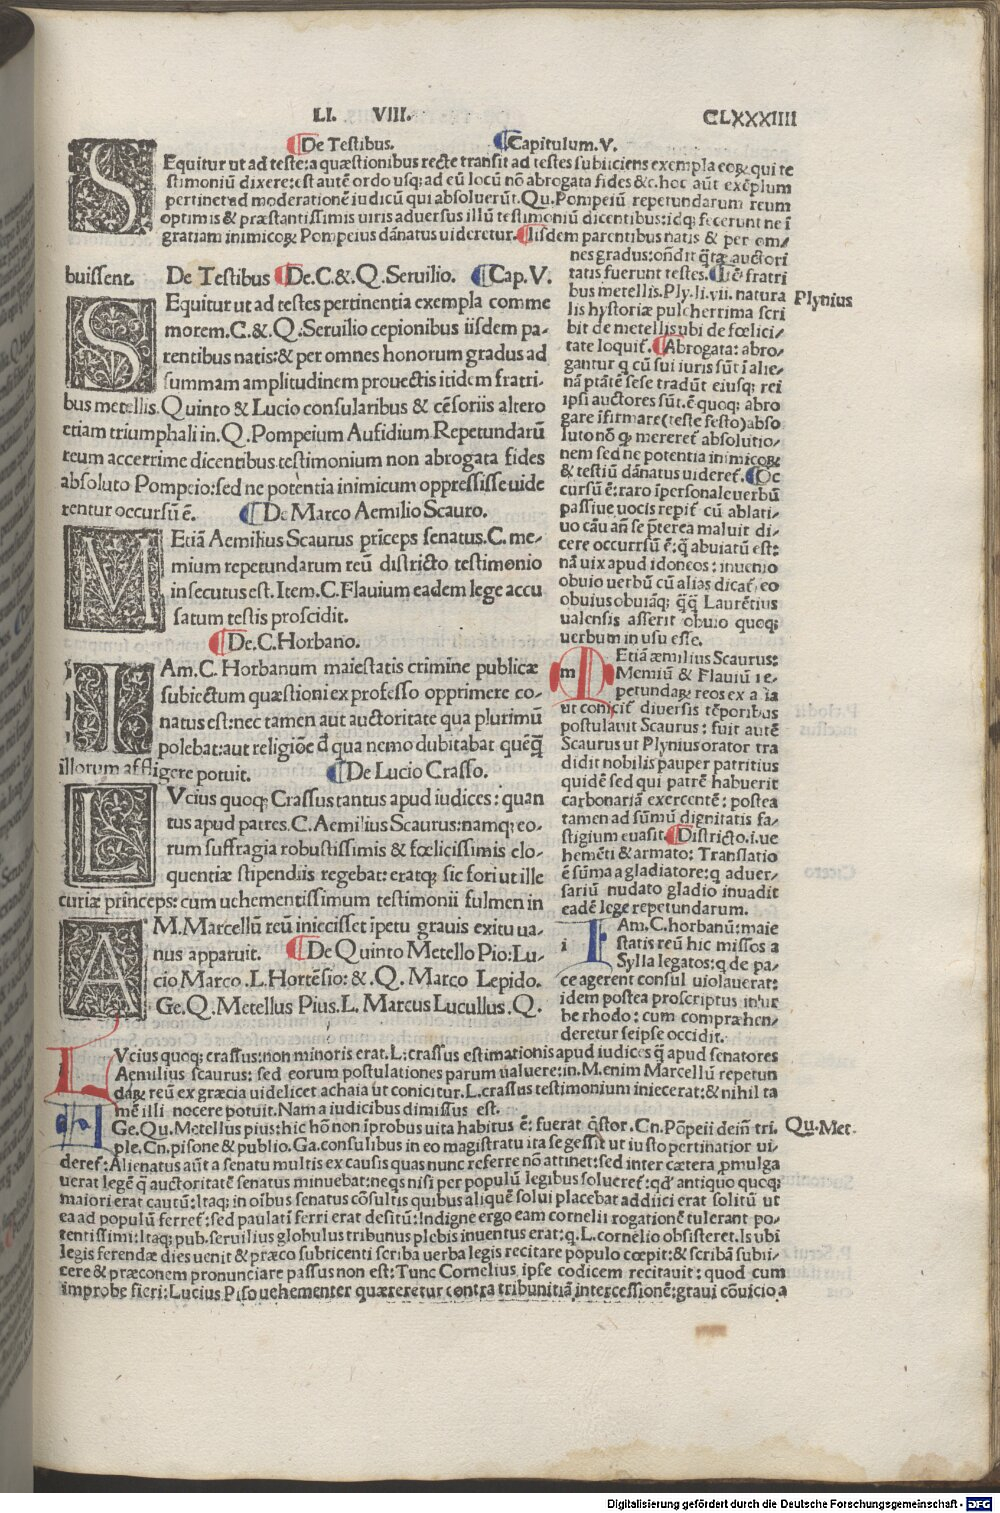 LI. VIII. CLXXXIIII
De Testibus. Capitulum.V.
SEquitur ut ad teste:a quæstionibus recte transit ad testes subiiciens exempla eoꝝ qui te
stimoniū dixere:est autē ordo usq; ad eū locū nō abrogata fides &c.hoc aūt exēplum
pertinet ad moderationē iudicū qui absoluerūt.Qu.Pompeiū repetundarum reum
optimis & præstantissimis uiris aduersus illū testimoniū dicentibus:idq; fecerunt ne ī
gratiam inimicoꝝ Pompeius dānatus uideretur. Iisdem parentibus natis & per om/
buissent. De Testibus De.C.&.Q.Seruilio. Cap.V.
SEquitur ut ad testes pertinentia exempla comme
morem.C.&.Q.Seruilio cepionibus iisdem pa-
rentibus natis:& per omnes honorum gradus ad
summam amplitudinem prouectis itidem fratri-
bus metellis.Quinto & Lucio consularibus & cēsoriis altero
etiam triumphali in.Q.Pompeium Aufidium Repetundarū
reum accerrime dicentibus testimonium non abrogata fides
absoluto Pompeio:sed ne potentia inimicum oppressisse uide
rentur occursū ē. De Marco Aemilio Scauro.
MEtiā Aemilius Scaurus prīceps senatus.C.me-
mium repetundarum reū districto testimonio
insecutus est.Item.C.Flauium eadem lege accu
satum testis proscidit.
De.C.Horbano.
IAm.C.Horbanum maiestatis crimine publicæ
subiectum quæstioni ex professo opprimere co-
natus est:nec tamen aut auctoritate qua plurimū
polebat:aut religiōe đ qua nemo dubitabat quēq̄
illorum affligere potuit. De Lucio Crasso.
LVcius quoq; Crassus tantus apud iudices: quan
tus apud patres.C.Aemilius Scaurus:namq; eo-
rum suffragia robustissimis & fœlicissimis elo-
quentiæ stipendiis regebat:eratq; sic fori ut ille
curiæ princeps:cum uehementissimum testimonii fulmen in
AM.Marcellū reū iniecisset īpetu grauis exitu ua-
nus apparuit. De Quinto Metello Pio:Lu-
cio Marco.L.Hortēsio:&.Q.Marco Lepido.
Ge.Q.Metellus Pius.L.Marcus Lucullus.Q.
nes gradus:ondit q̄tæ auctori
tatis fuerunt testes. Itē fratri
bus metellis.Ply.li.vii. natura
lis hystoriæ pulcherrima scri
bit de metellis ubi de fœlici-
tate loquit̄. Abrogata: abro-
gantur q cū sui iuris sūt ī alie-
nā ptātē sese tradūt eiusq; rei
ipsi auctores sūt.ē quoq; abro
gare īfirmare(teste festo)abso
luto nō q; mereret̄ absolutio-
nem sed ne potentia inimicoꝝ
& testiū dānatus uideret̄. Oc
cursū ē:raro īpersonale uerbū
passiue uocis repit̄ cū ablati-
uo cāu an̄ se p̄terea maluit di-
cere occurrsū ē:q̄ abuiatū est:
nā uix apud idoneos: inuenio
obuio uerbū cū alias dicat̄,eo
obuius obuiāq; q̄q̄ Laurētius
ualensis asserit obuio quoq;
uerbum in usu esse.
mEtiā æmilius Scaurus:
Memiū & Flauiū re-
petundaꝝ reos ex a ia
ut conicit̄ diuersis tēporibus
postulauit Scaurus: fuit autē
Scaurus ut Plynius orator tra
didit nobilis pauper patritius
quidē sed qui patrē habuerit
carbonariā exercentē: postea
tamen ad sūmū dignitatis fa-
stigium euasit. Districto.i.ue
hemēti & armato: Translatio
ē sūma a gladiatore:q aduer-
sariū nudato gladio inuadit
eadē lege repetundarum.
iAm.C.horbanū:maie
statis reū hic missos a
Sylla legatos:q de pa-
ce agerent consul uiolauerat:
idem postea proscriptus in ur
be rhodo: cum compræhen-
deretur seipse occidit.
Plynius
LVcius quoq; crassus:non minoris erat.L:crassus estimationis apud iudices q̄ apud senatores
Aemilius scaurus: sed eorum postulationes parum ualuere:in.M.enim Marcellū repetun
daꝝ reū ex græcia uidelicet achaia ut conicitur.L.crassus testimonium iniecerat:& nihil ta
mē illi nocere potuit.Nam a iudicibus dimissus est.
Ge.Qu.Metellus pius:hic hō non īprobus uita habitus ē: fuerat q̄stor.Cn.Pōpeii deīn tri-
ple.Cn.pisone & publio.Ga.consulibus in eo magistratu ita se gessit ut iusto pertinatior ui-
deret̄:Alienatus aūt a senatu multis ex causis quas nunc referre nō attinet:sed inter cætera ꝓmulga
uerat legē q̄ auctoritatē senatus minuebat:neqs nisi per populū legibus solueret̄:qd' antiquo quoq;
maiori erat cautū:Itaq; in oībus senatus cōsultis quibus aliquē solui placebat addiici erat solitū ut
ea ad populū ferret̄:sed paulati ferri erat desitū:Indigne ergo eam cornelii rogationē tulerant po-
tentissimi:Itaq; pub.seruilius globulus tribunus plebis inuentus erat:q.L.cornelio obsisteret.Is ubi
legis ferendæ dies uenit & præco subticenti scriba uerba legis recitare populo cœpit:& scribā subii-
cere & præconem pronunciare passus non est:Tunc Cornelius ipse codicem recitauit: quod cum
improbe fieri:Lucius Piso uehementer quæreretur contra tribunitiā intercessionē:graui cōuicio a
Qu.Met-
Digitalisierung gefördert durch die Deutsche Forschungsgemeinschaft - DFG